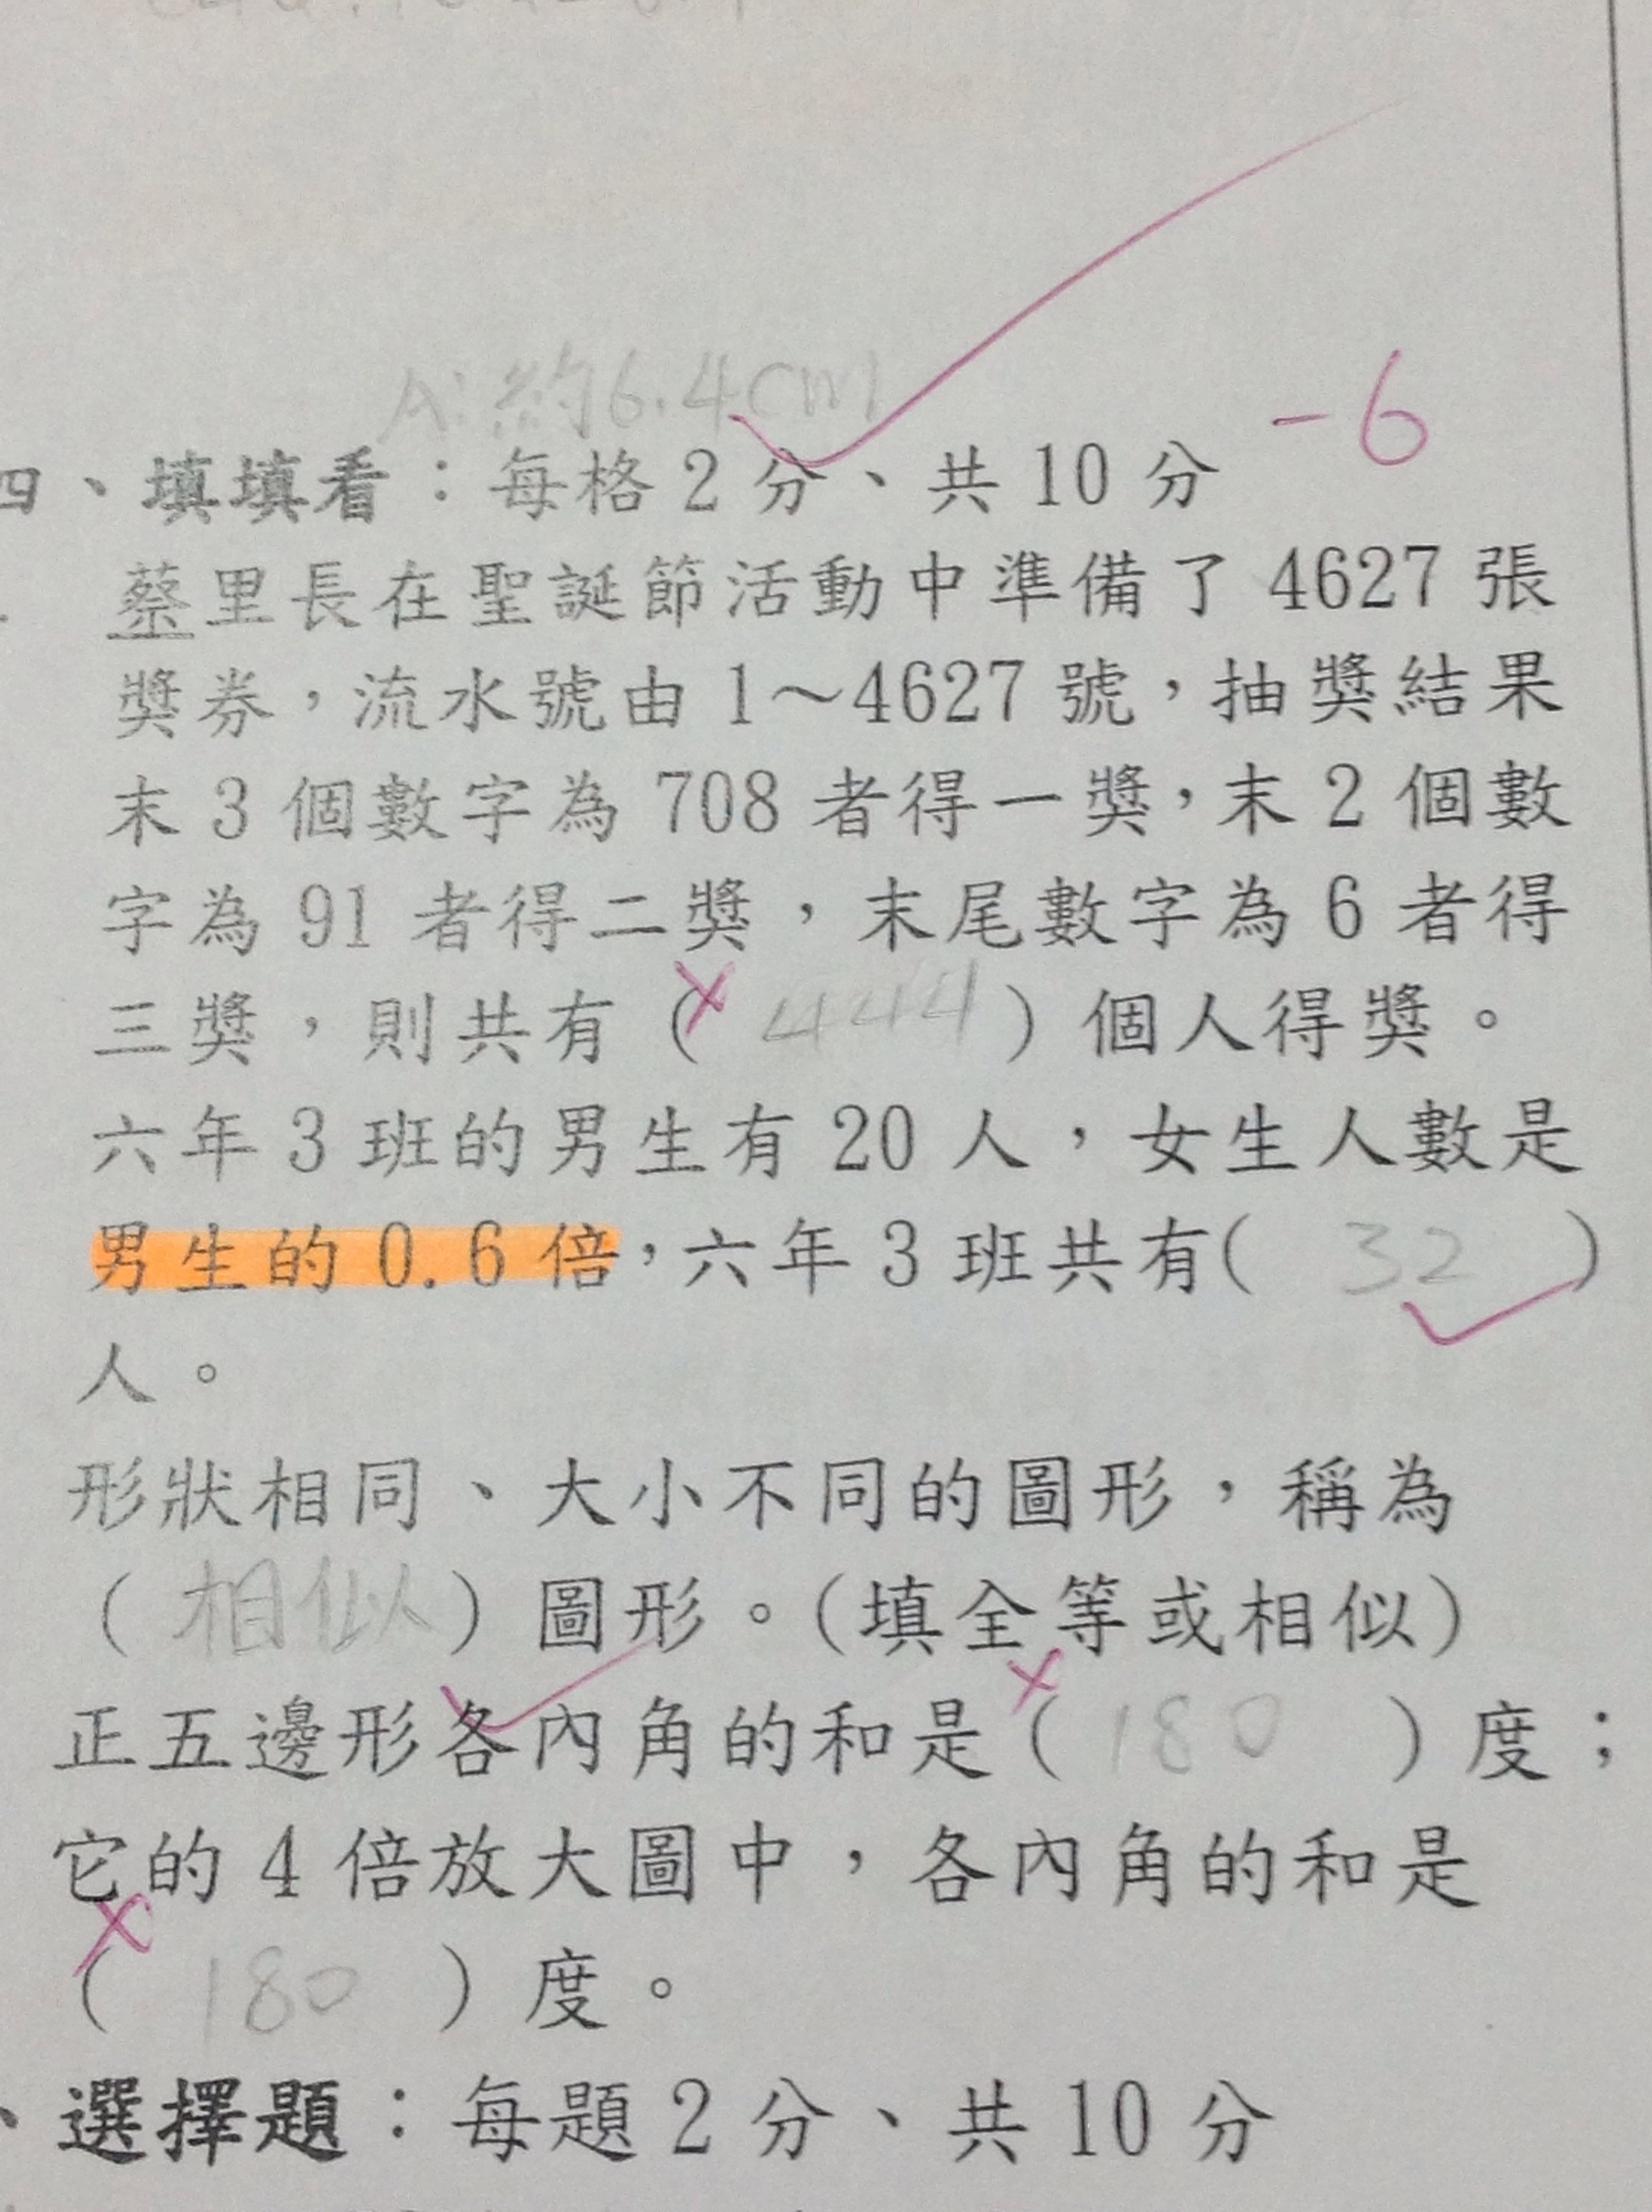 A:約6.4cm
四、填填看：每格2分、共10分 -6
蔡里長在聖誕節活動中準備了 4627 張
獎券，流水號由 1～4627 號，抽獎結果
末 3 個數字為 708 者得一獎，末 2 個數
字為 91 者得二獎，末尾數字為 6 者得
三獎，則共有（ 444 ）個人得獎。
六年 3 班的男生有 20 人，女生人數是
男生的 0.6 倍，六年 3 班共有( 32 )
人。
形狀相同、大小不同的圖形，稱為
（ 相似 ）圖形。(填全等或相似)
正五邊形各內角的和是（ 180 ）度；
它的 4 倍放大圖中，各內角的和是
（ 180 ）度。
、選擇題：每題2分、共10分